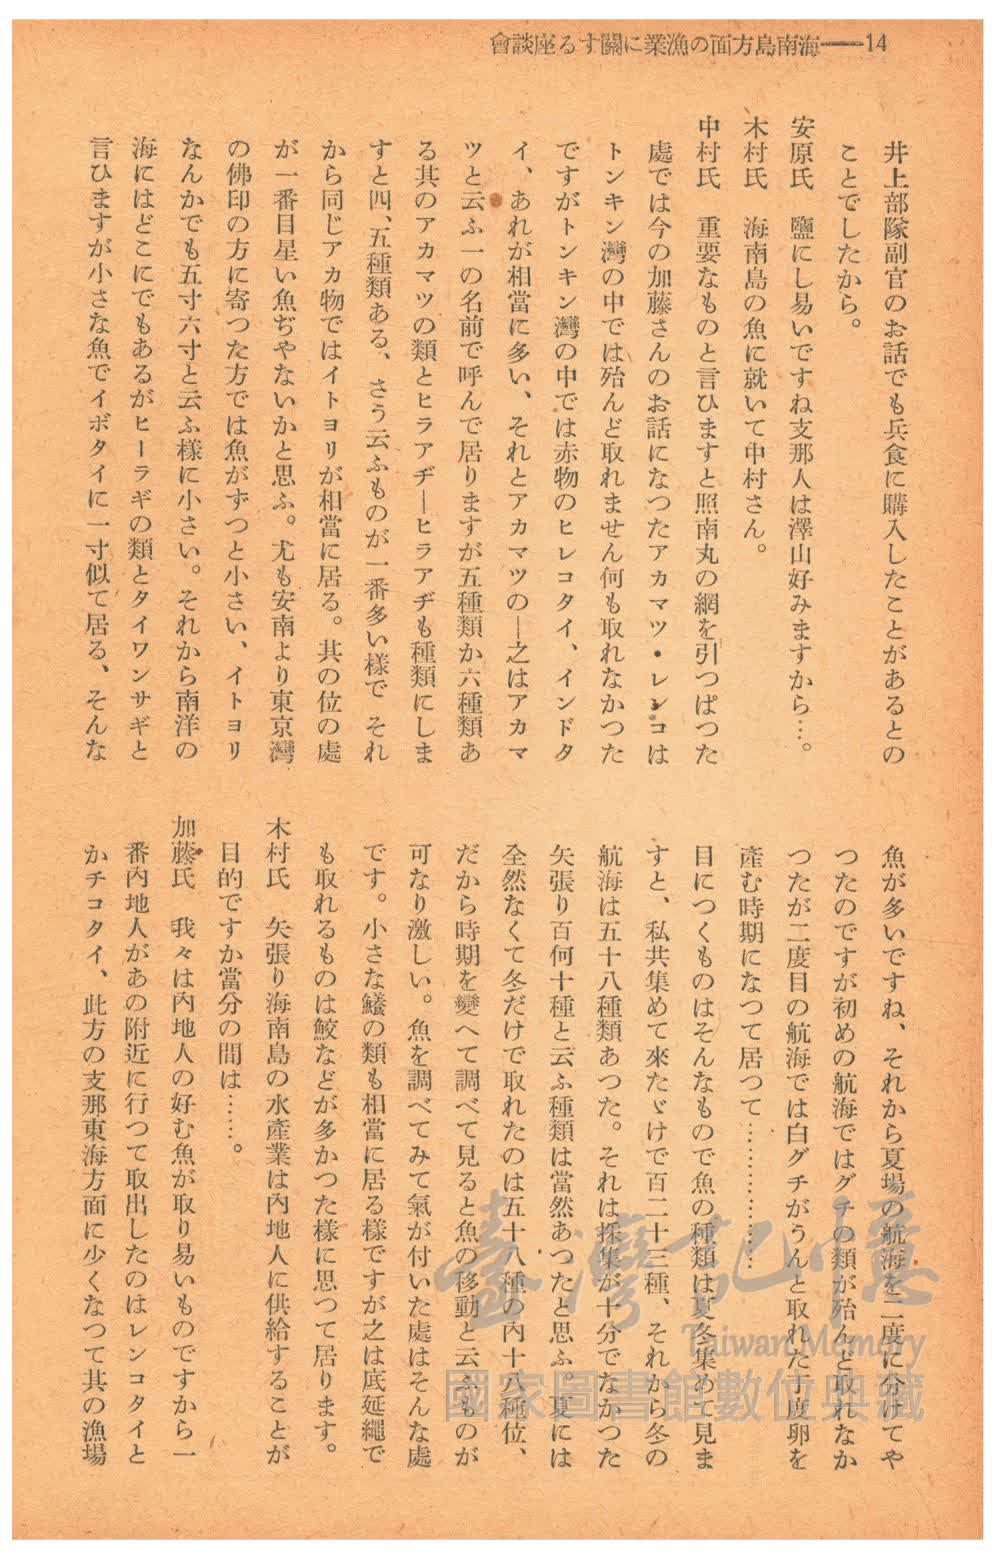 會談座るす關に業漁の面方島南海――14
井上部隊副官のお話でも兵食に購入したことがあるとの
ことでしたから。
安原氏　鹽にし易いですね支那人は澤山好みますから…。
木村氏　海南島の魚に就いて中村さん。
中村氏　重要なものと言ひますと照南丸の網を引つぱつた
處では今の加藤さんのお話になつたアカマツ・レンコは
トンキン灣の中では殆んど取れません何も取れなかつた
ですがトンキン灣の中では赤物のヒレコタイ、インドタ
イ、あれが相當に多い、それとアカマツの―之はアカマ
ツと云ふ一の名前で呼んで居りますが五種類か六種類あ
る其のアカマツの類とヒラアヂ―ヒラアヂも種類にしま
すと四、五種類ある、さう云ふものが一番多い樣で それ
から同じアカ物ではイトヨリが相當に居る。其の位の處
が一番目星い魚ぢやないかと思ふ。尤も安南より東京灣
の佛印の方に寄つた方では魚がずつと小さい、イトヨリ
なんかでも五寸六寸と云ふ樣に小さい。それから南洋の
海にはどこにでもあるがヒーラギの類とタイワンサギと
言ひますが小さな魚でイボタイに一寸似て居る、そんな
魚が多いですね、それから夏場の航海を二度に分けてや
つたのですが初めの航海ではグチの類が殆んど取れなか
つたが二度目の航海では白グチがうんと取れた丁度卵を
產む時期になつて居つて………………
目につくものはそんなもので魚の種類は夏冬集めて見ま
すと、私共集めて來たゞけで百二十三種、それから冬の
航海は五十八種類あつた。それは採集が十分でなかつた
矢張り百何十種と云ふ種類は當然あつたと思ふ。夏には
全然なくて冬だけで取れたのは五十八種の內十八種位、
だから時期を變へて調べて見ると魚の移動と云ふものが
可なり激しい。魚を調べてみて氣が付いた處はそんな處
です。小さな鱶の類も相當に居る樣ですが之は底延繩で
も取れるものは鮫などが多かつた樣に思つて居ります。
木村氏　矢張り海南島の水產業は內地人に供給することが
目的ですか當分の間は……。
加藤氏　我々は內地人の好む魚が取り易いものですから一
番內地人があの附近に行つて取出したのはレンコタイと
かチコタイ、此方の支那東海方面に少くなつて其の漁場
臺灣記憶
Taiwan Memory
國家圖書館數位典藏